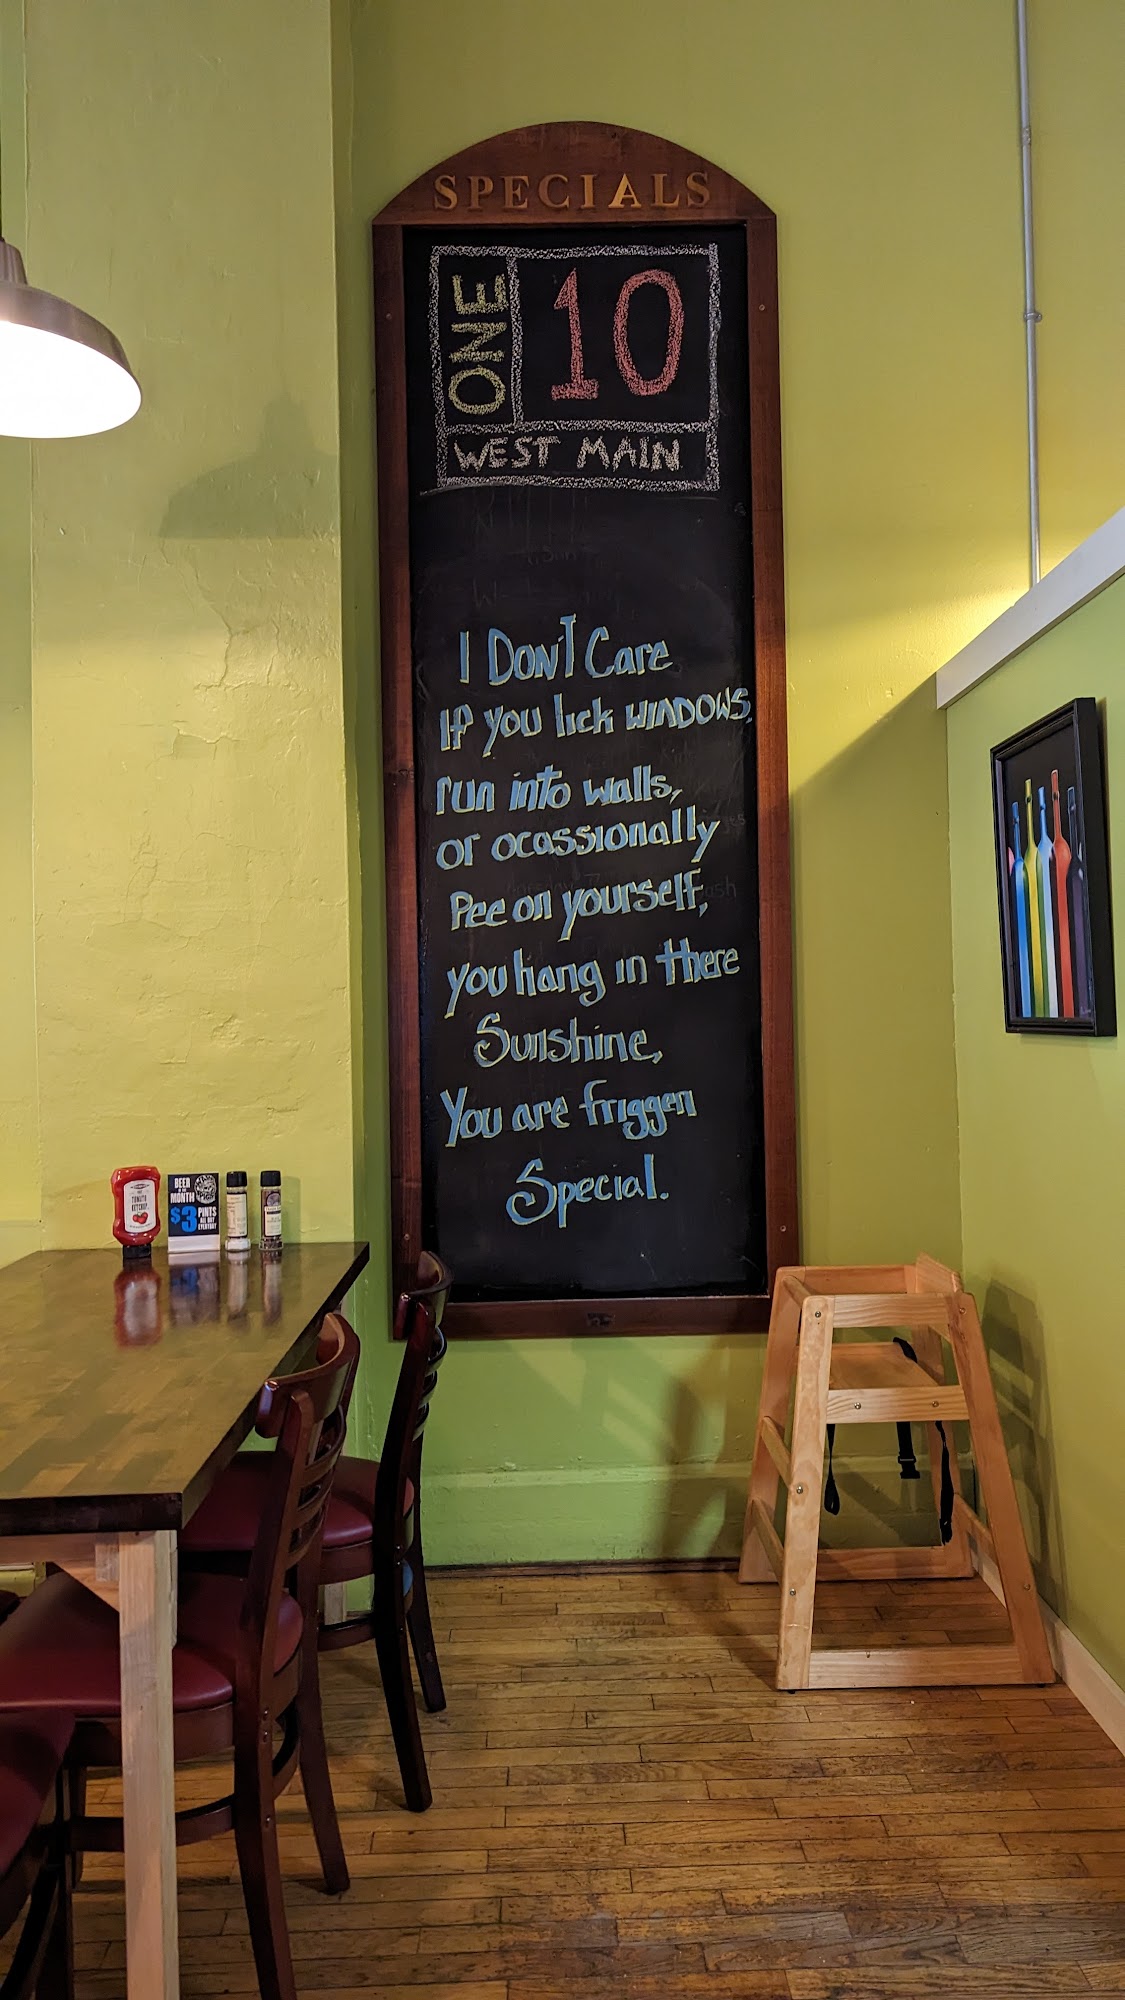 SPECIALS
ONE
10
WEST MAIN
I DON'T Care
If you lick WINDOWS,
run into walls,
or ocassionally
Pee on yourself,
you hang in there
Sunshine,
You are friggen
Special.
TOMATO
KETCHUP
BEER
MONTH
$3 PINTS
ALL DAY
EVERYDAY